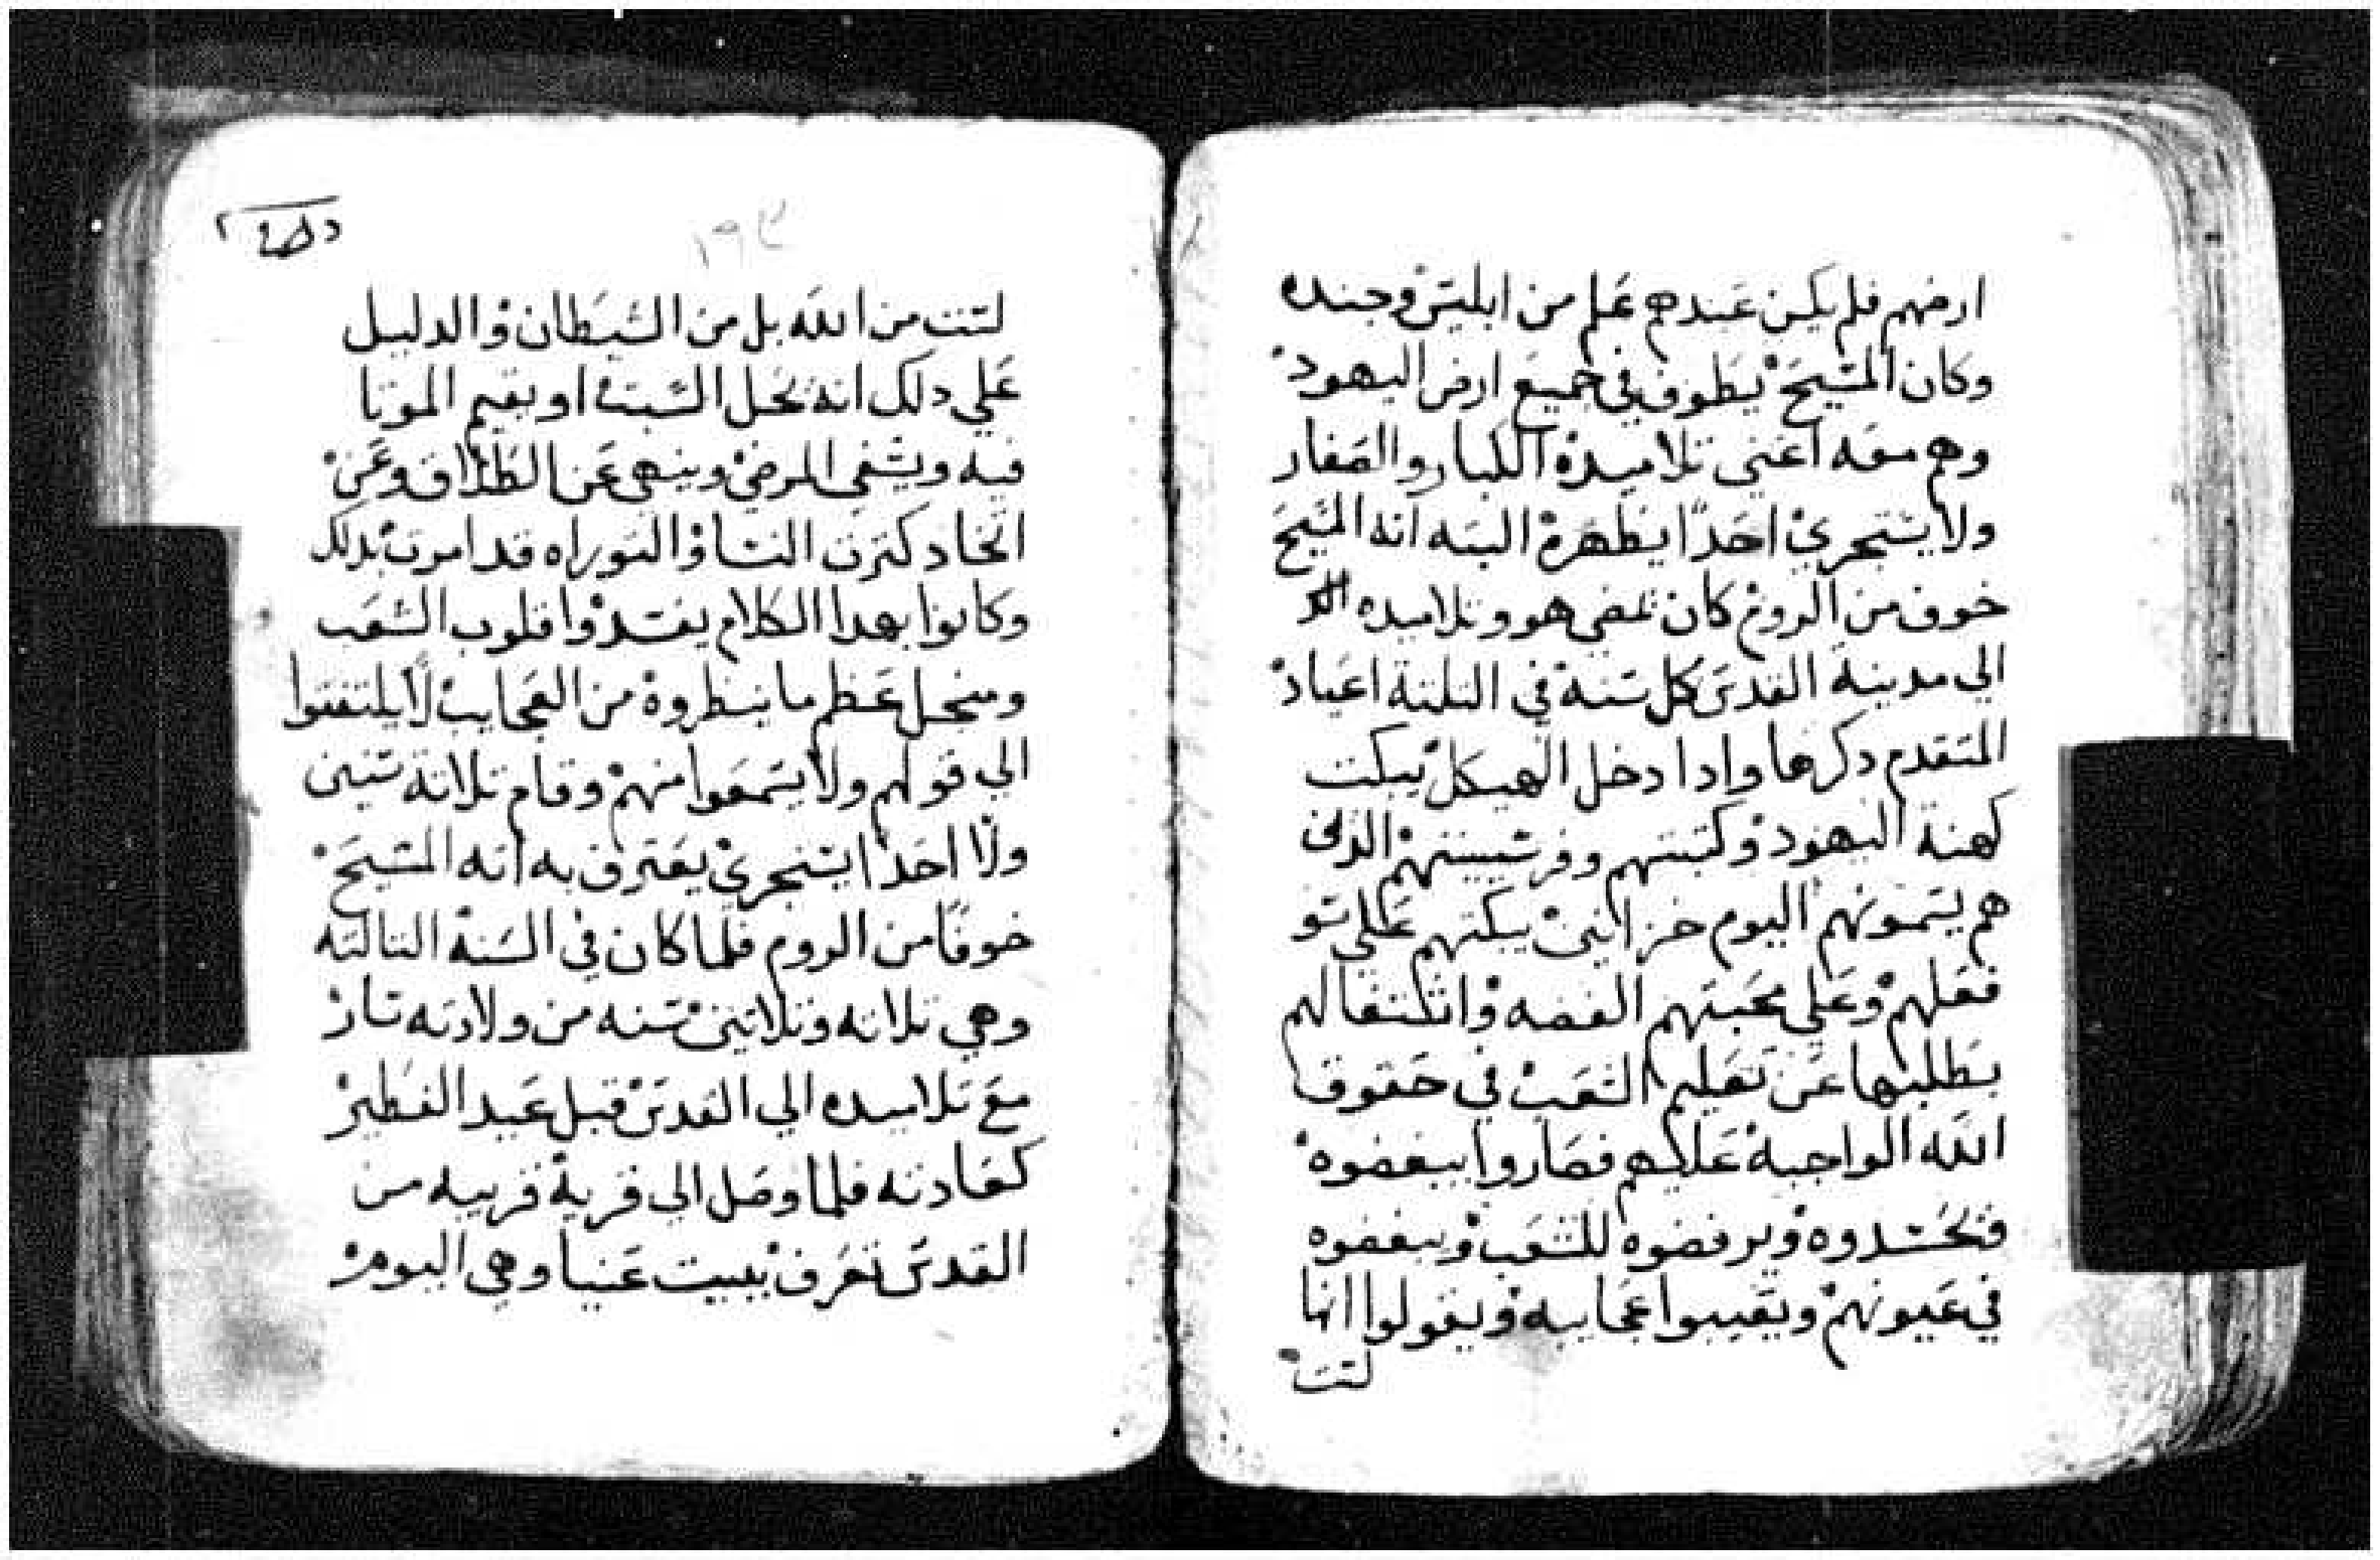 ارضهم فلم يكن عندهم علم من ابليس وجنده
وكان المسيح يطوف في جميع ارض اليهود
وهم معه اعني تلاميده الكبار والصغار
ولا يستجري احدًا يظهره البته انه المسيح
خوف من الروم كان يمضي هو وتلاميده
الي مدينة القدس كل سنه في التلتة اعياد
المتقدم دكرها وادا دخل الهيكل يبكت
كهنة اليهود وكتبتهم وفرسيينهم الدين
هم يسمونهم اليوم خزانين يبكتهم علي سو
فعلهم وعلي محبتهم الفضه واشتغالهم
بطلبها عن تعليم الشعب في حقوق
الله الواجبة عليهم فصاروا يبغضوه
فحسدوه ويرفضوه للشعب ويبغضوه
في عيونهم ويعيبوا عجايبه ويقولوا انها
لست
١٩٤
لست من الله بل من الشيطان والدليل
علي دلك انه يحل السبت او يقيم الموتا
فيه ويشفي المرضي وينهي عن الطلاق وعن
اتخاد كترت النسا والتوراه قد امرت بدلك
وكانوا بهدا الكلام يفسدوا قلوب الشعب
ومنجل عظم ما ينظروه من العجايب لا يلتفتوا
الي قولهم ولا يسمعوا منهم وقام تلاتة سنين
ولا احدا يستجري يعترف به انه المسيح
خوفًا من الروم فلما كان في السنة التالته
وهي تلاته وتلاتين سنه من ولادته سار
مع تلاميده الي القدس قبل عيد الفطير
كعادته فلما وصل الي قرية قريبه من
القدس تعرف ببيت عنيا وهي اليوم